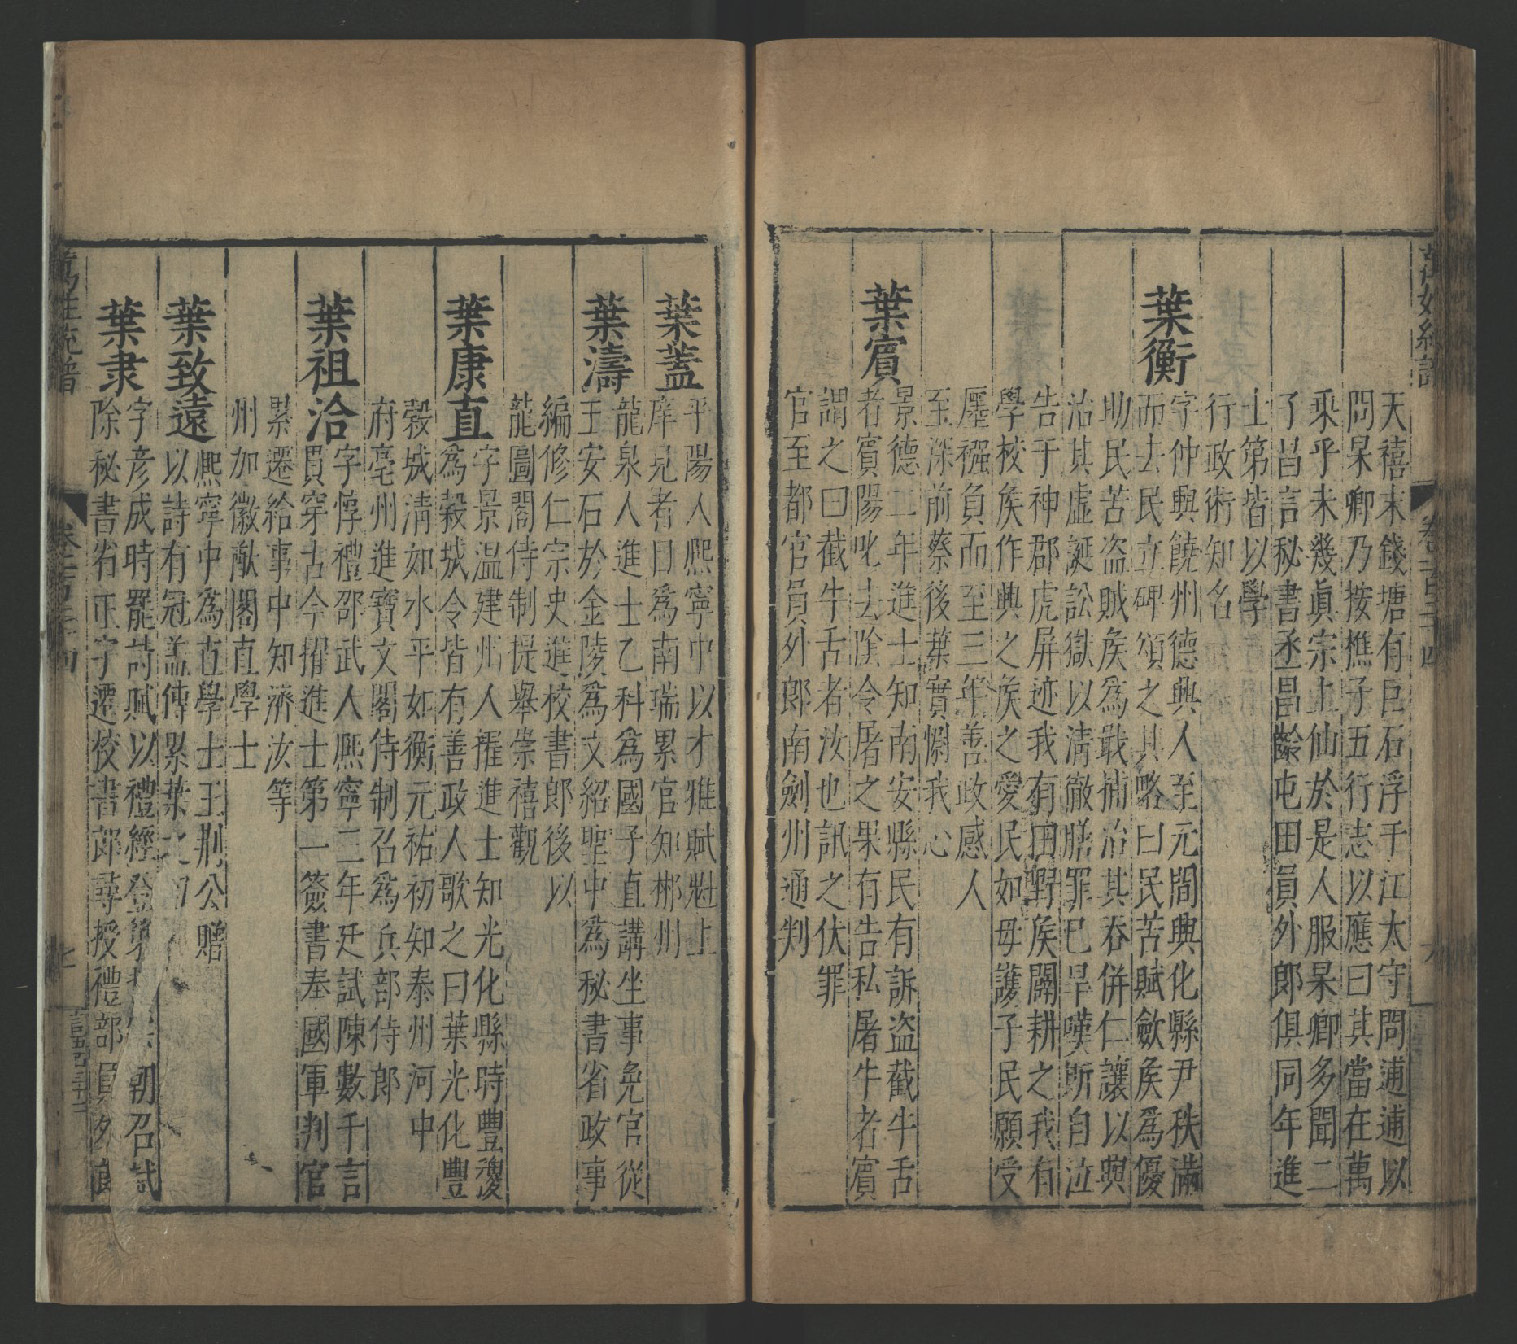 天禧末錢塘有巨石浮于江太守問逋逋以
問杲卿乃按樵子五行志以應曰其當在萬
乘乎未幾眞宗上仙於是人服杲卿多聞二
了昌言秘書丞昌齡屯田員外郎俱同年進
士第皆以學
行政術知名
葉衡
字仲輿饒州德興人至元間興化縣尹秩滿
而去民立碑頌之其略曰民苦賦歛矦爲優
助民苦盗賊矦爲戢捕治其吞併仁讓以興
治其虛誕訟獄以清徹膳罪已旱嘆所自泣
告于神郡虎屏迹我有田野矦闢耕之我有
學校矦作興之矦之愛民如毋護子民願受
廛襁負而至三年善政感人
至深前蔡後葉實惻我心
葉賓
景德二年進士知南安縣民有訴盗截牛舌
者賓陽叱去陰令屠之果有告私屠牛者賓
謂之曰截牛舌者汝也訊之伏罪
官至都官員外郎南劍州通判
葉蓋
平陽人熙寧中以才雅賦魁上
庠兄者目爲南瑞累官知郴州
葉濤
龍泉人進士乙科爲國子直講坐事免官從
王安石於金陵爲文紹聖中爲秘書省政事
編修仁宗史進校書郎後以
龍圖閣侍制提舉崇禧觀
葉康直
字景温建州人擢進士知光化縣時豐稷
爲榖城令皆有善政人歌之曰葉光化豐
榖城清如水平如衡元祐初知泰州河中
府亳州進寶文閣侍制召爲兵部侍郎
葉祖洽
字惇禮邵武人熙寧二年廷試陳數千言
貫穿古今擢進士第一簽書奉國軍判官
累遷給事中知濟汝等
州加徽猷閣直學士
葉致遠
熙寧中爲直學士王荆公贈
以詩有冠盖傳累葉之
葉隶
字彦成時罷詩賦以禮經登第 朝召試
除秘書省正字遷校書郎尋授禮部員外郎
萬姓統譜
卷一百二十四